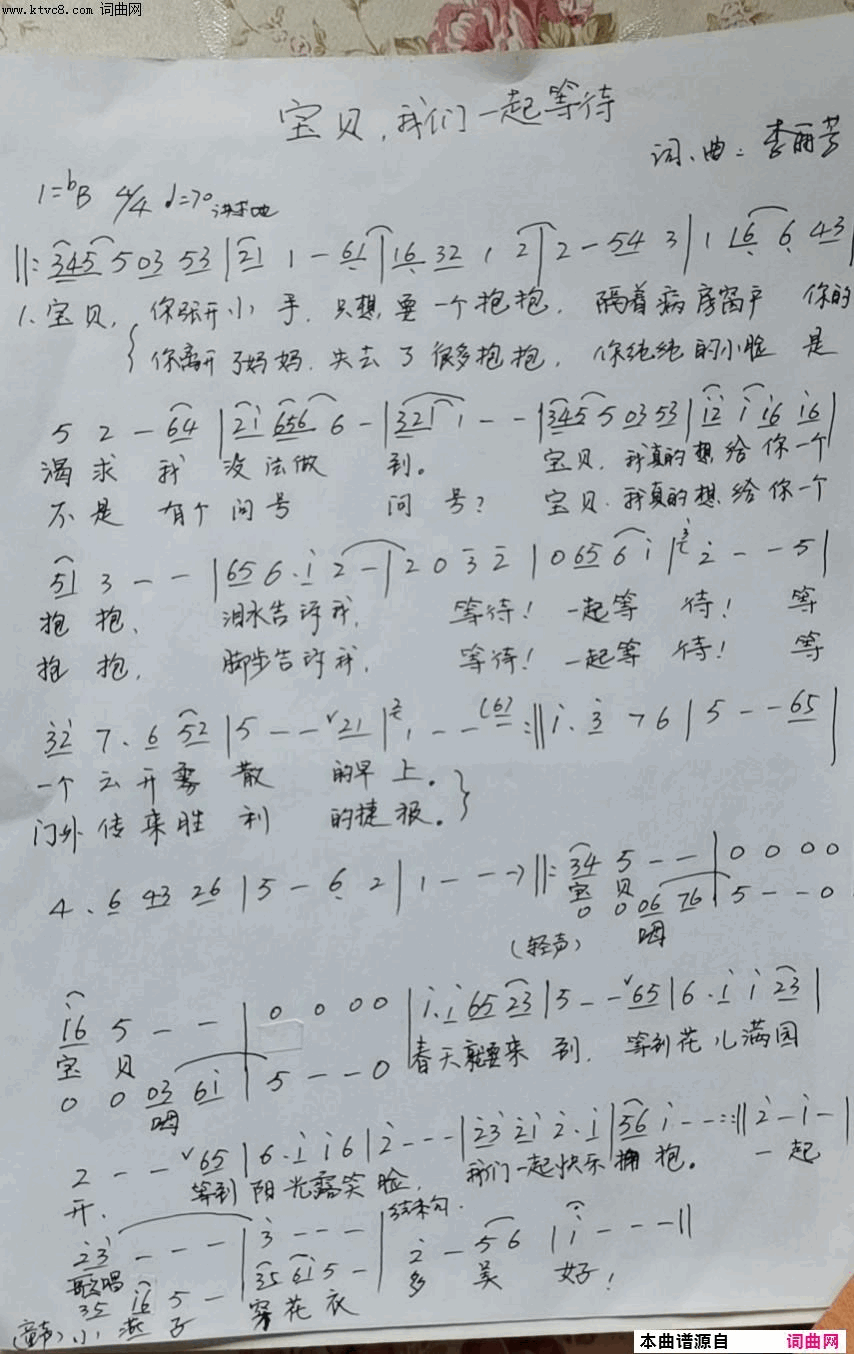 www.ktvc8.com 词曲网
宝贝,我们一起等待
词、曲:李丽芳
1=bB 4/4 ♩=70
‖: 345 5 03 53 | 21 1 - 61 | 16 32 1 2 | 2 - 54 3 | 1 16 6 43 |
1、宝贝, 你张开小手.只想要一个抱抱. 隔着病房窗户 你的
你离开了妈妈.失去了很多抱抱. 你纯纯的小脸 是
5 2 - 64 | 21 656 6 - | 321 1 - - | 345 5 03 53 | 12 1 16 16 |
渴求 我没法做 到。 宝贝.我真的想给你一个
不是 有个问号 问号? 宝贝.我真的想给你一个
51 3 - - | 65 6.1 2 - | 2 0 3 2 | 0 65 6 1 | 2 - - 5 |
抱抱、 泪水告诉我, 等待!一起等 待! 等
抱抱, 脚步告诉我, 等待!一起等 待! 等
32 7.6 52 | 5 - - 21 | 1 - - (6) :‖ 1.3 76 | 5 - - 65 |
一个云开雾散 的早上。
门外传来胜利 的捷报。
4.6 43 26 | 5 - 6 2 | 1 - - - → ‖: 34 5 - - | 0 0 0 0
宝贝
0 0 06 76 | 5 - - 0
(轻声) 嗯
16 5 - - | 0 0 0 0 | 1.1 65 23 | 5 - - 65 | 6.1 1 23 |
宝贝 春天就要来到. 等到花儿满园
0 0 03 61 | 5 - - 0
嗯
2 - - 65 | 6.1 16 | 2 - - - | 23 21 2.1 | 56 1 - - :‖ 2 - 1 - |
开. 等到阳光露笑脸. 我们一起快乐拥抱。 一起
结束句.
23 - - - | 3 - - - | 2 - 56 | 1 - - - ‖
歌唱 多美好!
35 16 5 - | 35 61 5 - |
(童声)小燕子 穿花衣
本曲谱源自 词曲网